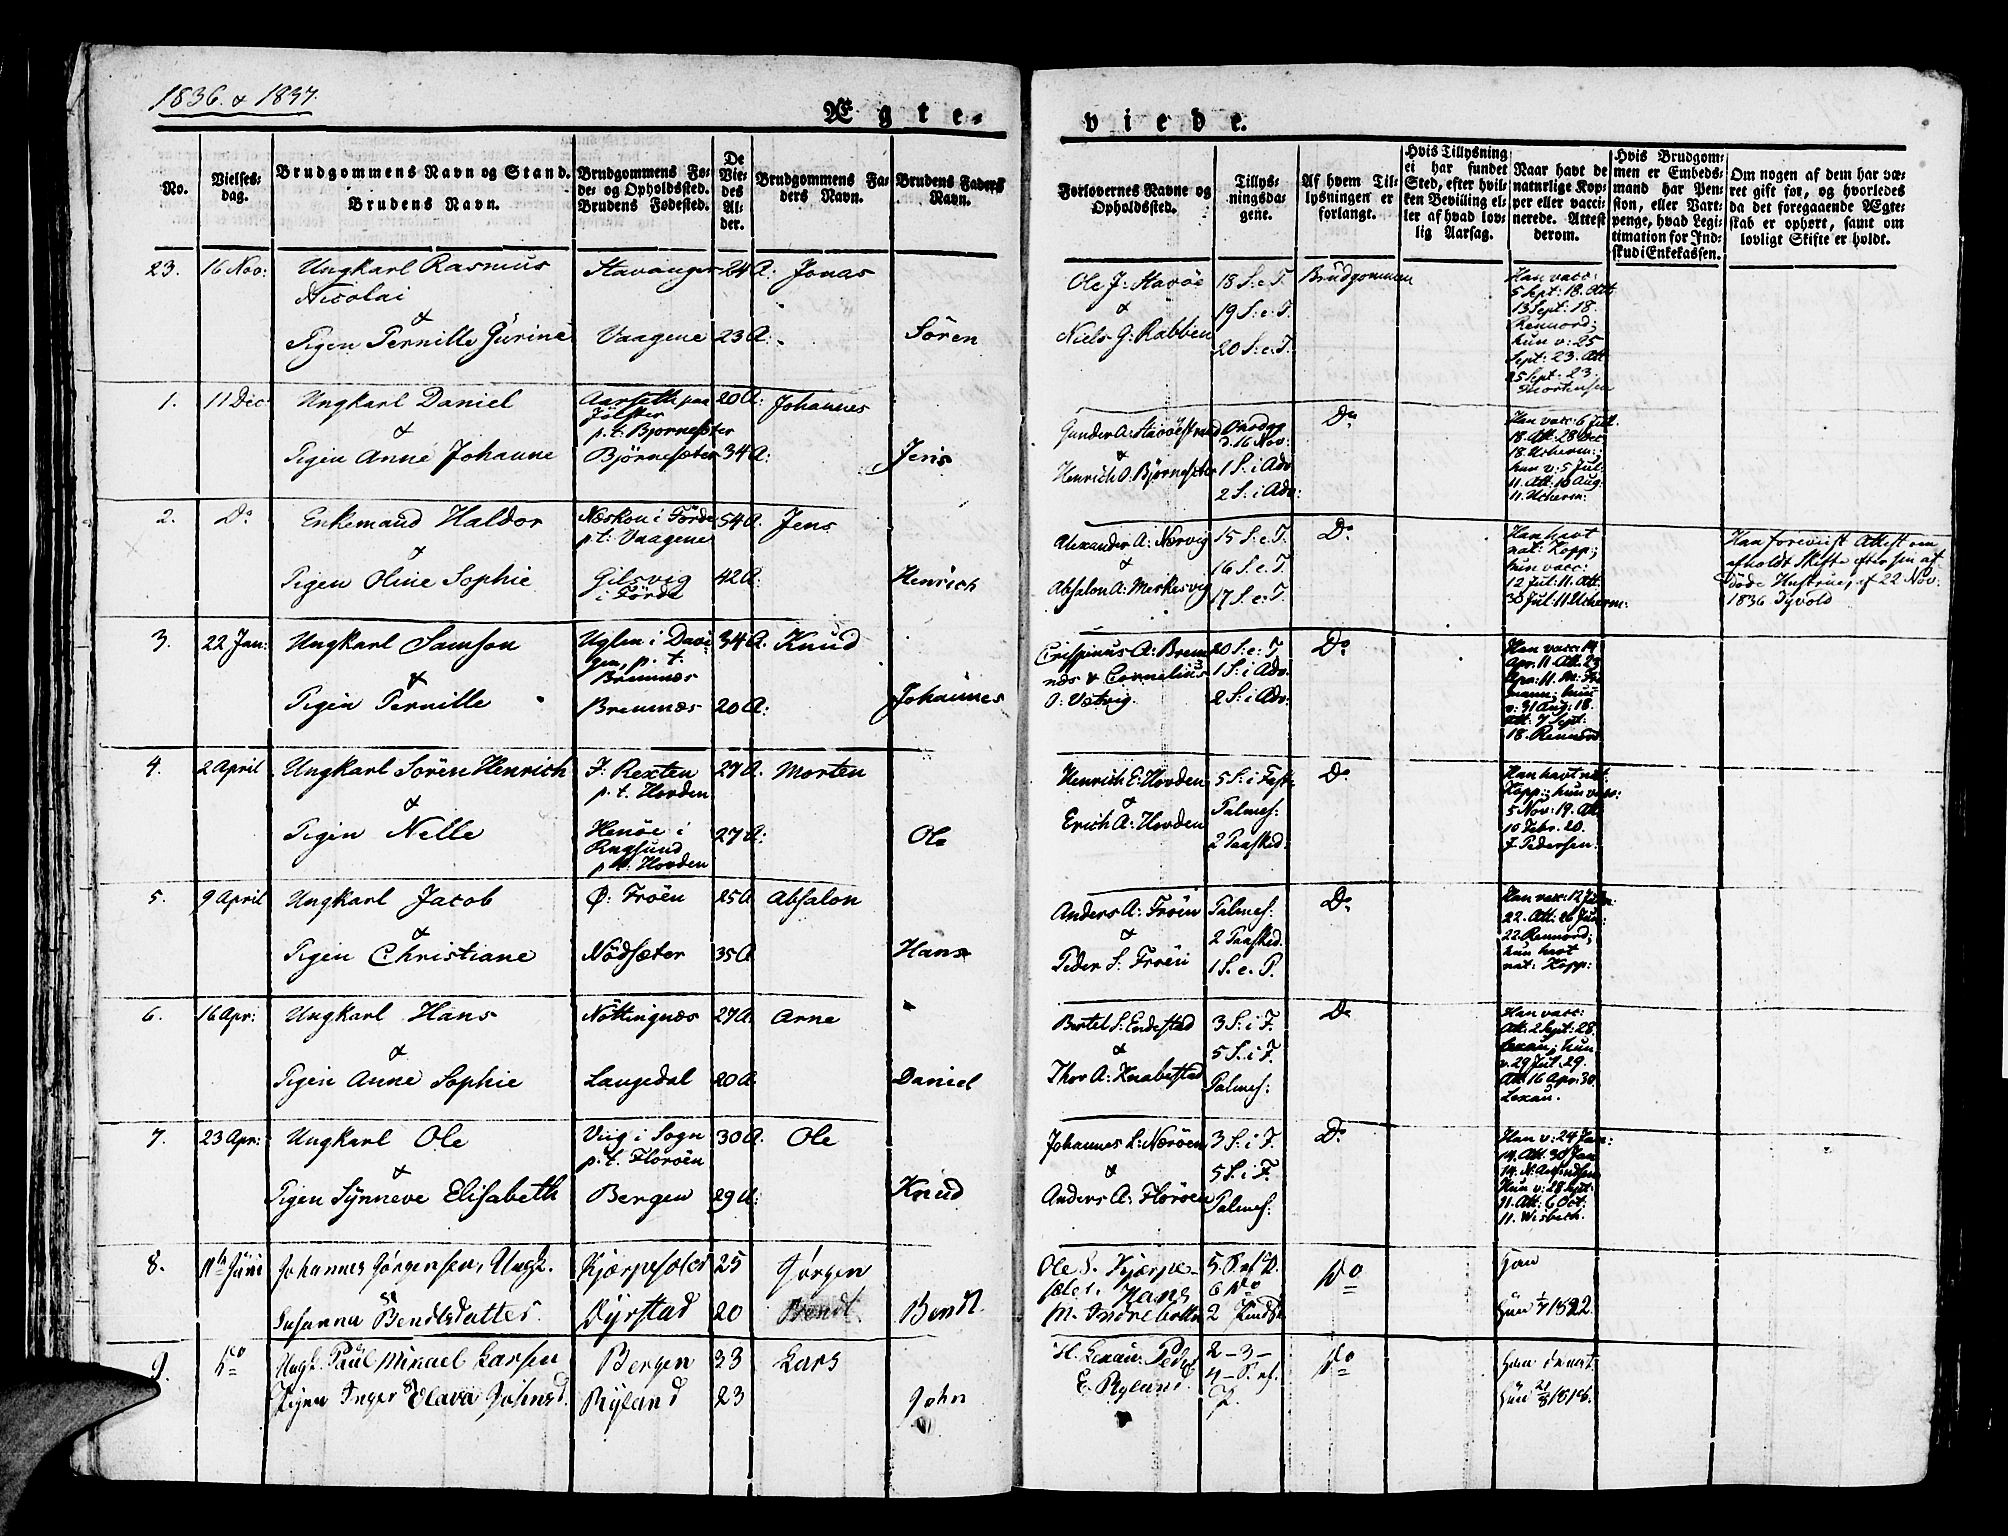 1836. & 1837.
Ægte-
viede.
No.
Vielses-
dag.
Brudgommens Navn og Stand.
Brudens Navn.
Brudgommens Fø-
de- og Opholdssted.
Brudens Fødested.
De
Vie-
des
Al-
der.
Brudgommens Fa-
ders Navn.
Brudens Faders
Navn.
Forlovernes Navne og
Opholdssted.
Tillys-
ningsda-
gene.
Af hvem Til-
lysningen er
forlangt.
Hvis Tillysning
ei har fundet
Sted, efter hvil-
ken Bevilling el-
ler af hvad lov-
lig Aarsag.
Naar havt de
naturlige Kop-
per eller vacci-
nerede. Attest
derom.
Hvis Brudgom-
men er Embeds-
mand har Pen-
sion, eller Vart-
penge, hvad Legi-
timation for Ind-
skud i Enkekassen.
Om nogen af dem har væ-
ret gift før, og hvorledes
da det foregaaende Ægte-
skab er ophørt, samt om
lovligt Skifte er holdt.
23. 16 Nov: Ungkarl Rasmus Stavanger 24 A: Jonas
Nicolai
&
Pigen Pernille Gurine Vaagene 23 A: Søren
Ole J: Havöe 18 S. e. T. Brudgommen
& 19 S: e. T.
Niels G: Rabben 20 S: e: T.
Han vacc:
5 Sept: 18. Att:
13 Sept: 18.
Rennord;
hun v: 25
Sept: 23. Att:
25 Sept: 23.
Mortensen
1. 11 Dec Ungkarl Daniel Aarseth paa 20 A: Johannes
Jölster
& p. t: Bjørnesæter
Pigen Anne Johanne Bjørnesæter 34 A: Jens
Gunder A: Havöestrand Onsdag D:o
& d. 16 Nov:
Henrich O. Bjørnesæter 1 S: i Adv:
2 S: i Adv:
Han vacc: 6 Jul:
18. Att: 28 Dec:
18. Ucherm:;
hun v: 5 Jul:
11. Att: 10 Aug:
11. Ucherm:
2. D:o Enkemand Haldor Næskou i Førde 54 A. Jens
p. t: Vaagene
&
Pigen Oline Sophie Gilsvig 42 A: Henrich
i Førde
Alexander A: Nærvig 15 S. e. T. D:o
& 16 S. e. T.
Absalon A: Merkesvig 17 S. e: T.
Han havt
nat: Kopp:;
hun vacc:
12 Jul: 11. Att:
30 Jul: 11 Ucherm:
Han foreviist Attest om
afholdt Skifte efter sin af-
døde Hustrue, af 22 Nov:
1836
3. 22 Jan: Ungkarl Samson Uglen i Davi- 34 A: Knud
gen, p. t.
& Bremnæs
Pigen Pernille Bremnæs 20 A: Johannes
Crispinus A: Brem- 20 S: e. T. D:o
næs & Cornelius 1 S: i Adv:
O: Vætvig. 2 S: i Adv:
Han vacc: 14
Apr. 11 Att: 23
Apr: 11.
mann; hun
v: 31 Aug: 18.
Att: 7 Sept:
18. Rennord.
4. 2 April Ungkarl Søren Henrich I: Rexten 27 A. Morten
p. t. Hovden
&
Pigen Nelle Henöe i 27 A: Ole
Rugsund
p. t. Hovden
Henrich E: Hovden 5 S: i Fast: D:o
& Palmes:
Erich A: Hovden 2 Paaskd:
Han havt nat:
Kopp:; hun vacc:
5 Nov: 19. Att:
10 Febr. 20.
J Pedersen:
5. 9 April Ungkarl Jacob Ø: Frøen 25 A Absalon
&
Pigen Christiane Nødsæter 35 A Hans
Anders A: Frøen Palmes: D:o
& 2 Paaskd.
Peder S: Frøen 1 S. e. P.
Han vacc: 12 Jun:
22. Att: 26 Jun:
22 Rennord;
hun havt
nat: Kopp:
6. 16 Apr: Ungkarl Hans Nøttingnæs 27 A: Arne
&
Pigen Anne Sophie Langedal 20 A: Daniel
Bertel S: Endestad 3 S: i F. D:o
& 5 S. i F.
Thor A: Knabestad Palmes:
Han vacc:
Att: 2 Sept: 28.
Lexau; hun
v. 29 Jul. 29.
Att: 16 Apr: 30.
Lexau.
7. 23 Apr: Ungkarl Ole Viig i Sogn 30 A. Ole
p. t. Florøen
&
Pigen Synneve Elisabeth Bergen 29 A: Knud
Johannes L: Nærøen 3 S: i F. D:o
& 5 S. i F.
Anders A: Florøen Palmes:
Han v: 24 Jan:
14. Att: 30 Jan
14. N: Amundsen
Hun v: 28 Sept:
11. Att: 6 Oct:
11. Wisbech.
8. 11te Juni Johannes Jørgensen, Ungk. Kjærpesæter 25 Jørgen
Susanna Bendtsdatter Dyrstad 20 Bendt Bendt.
Ole S. Kjærpe- 5. S. ef. P. Do
sæter. Hans 6 Do
M. Indrebotten 2 Pindsd.
Han
Hun 1/7 1822.
9. Do Ungk. Paul Mikael Larsen Bergen 33 Lars
Pigen Inger Olava Johnsd. Ryland 23 John
H. Lexau. Peder 2 - 3 - Do
E. Ryland. 4 - S. ef.
P.
Han do nat.
Hun 21/8 1818.